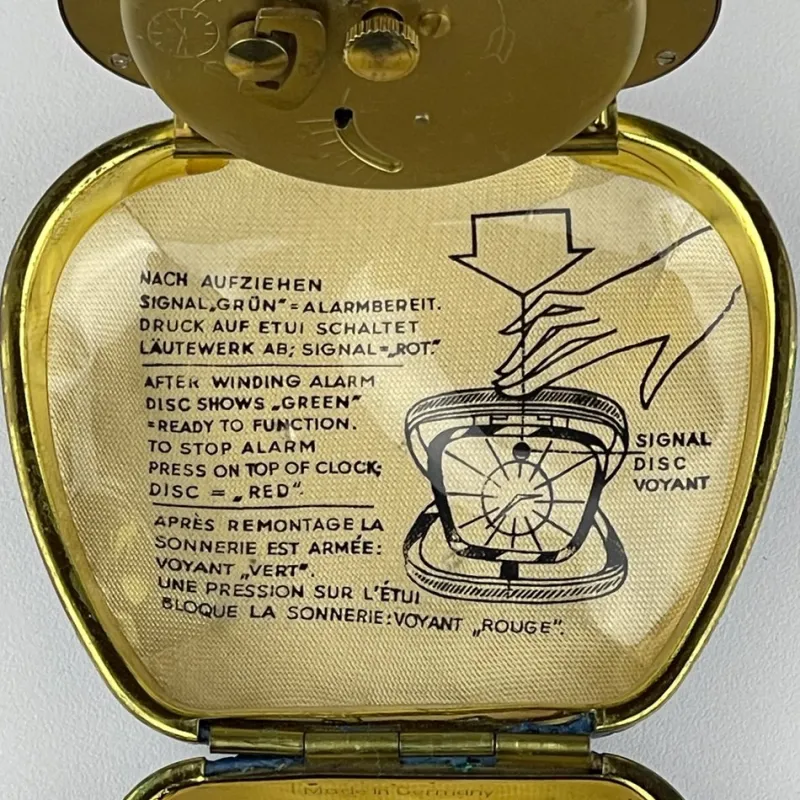 NACH AUFZIEHEN
SIGNAL „GRÜN" = ALARMBEREIT.
DRUCK AUF ETUI SCHALTET
LÄUTEWERK AB; SIGNAL = „ROT."
AFTER WINDING ALARM
DISC SHOWS „GREEN"
=READY TO FUNCTION.
TO STOP ALARM
PRESS ON TOP OF CLOCK;
DISC = „RED".
APRÈS REMONTAGE LA
SONNERIE EST ARMÉE:
VOYANT „VERT".
UNE PRESSION SUR L'ÉTUI
BLOQUE LA SONNERIE: VOYANT „ROUGE".
SIGNAL
DISC
VOYANT
Made in Germany